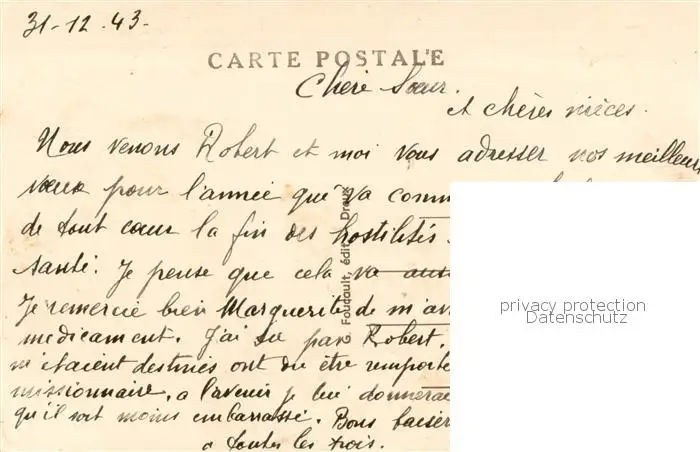 31-12.43.
CARTE POSTALE
Chère Sœur.
et chères nièces.
Nous venons Robert et moi vous adresser nos meilleurs
vœux pour l'année qui va comm
de tout cœur la fin des hostilités
santé. Je pense que cela va aussi
Je remercie bien Marguerite de m'av
medicament. J'ai su par Robert.
m'étaient destinés ont du être remporte
missionnaire, a l'avenir je lui donnerai
qu'il soit moins embarrassé. Bons baiser
a toutes les trois.
G. Foucault, édit. Dreux
privacy protection
Datenschutz